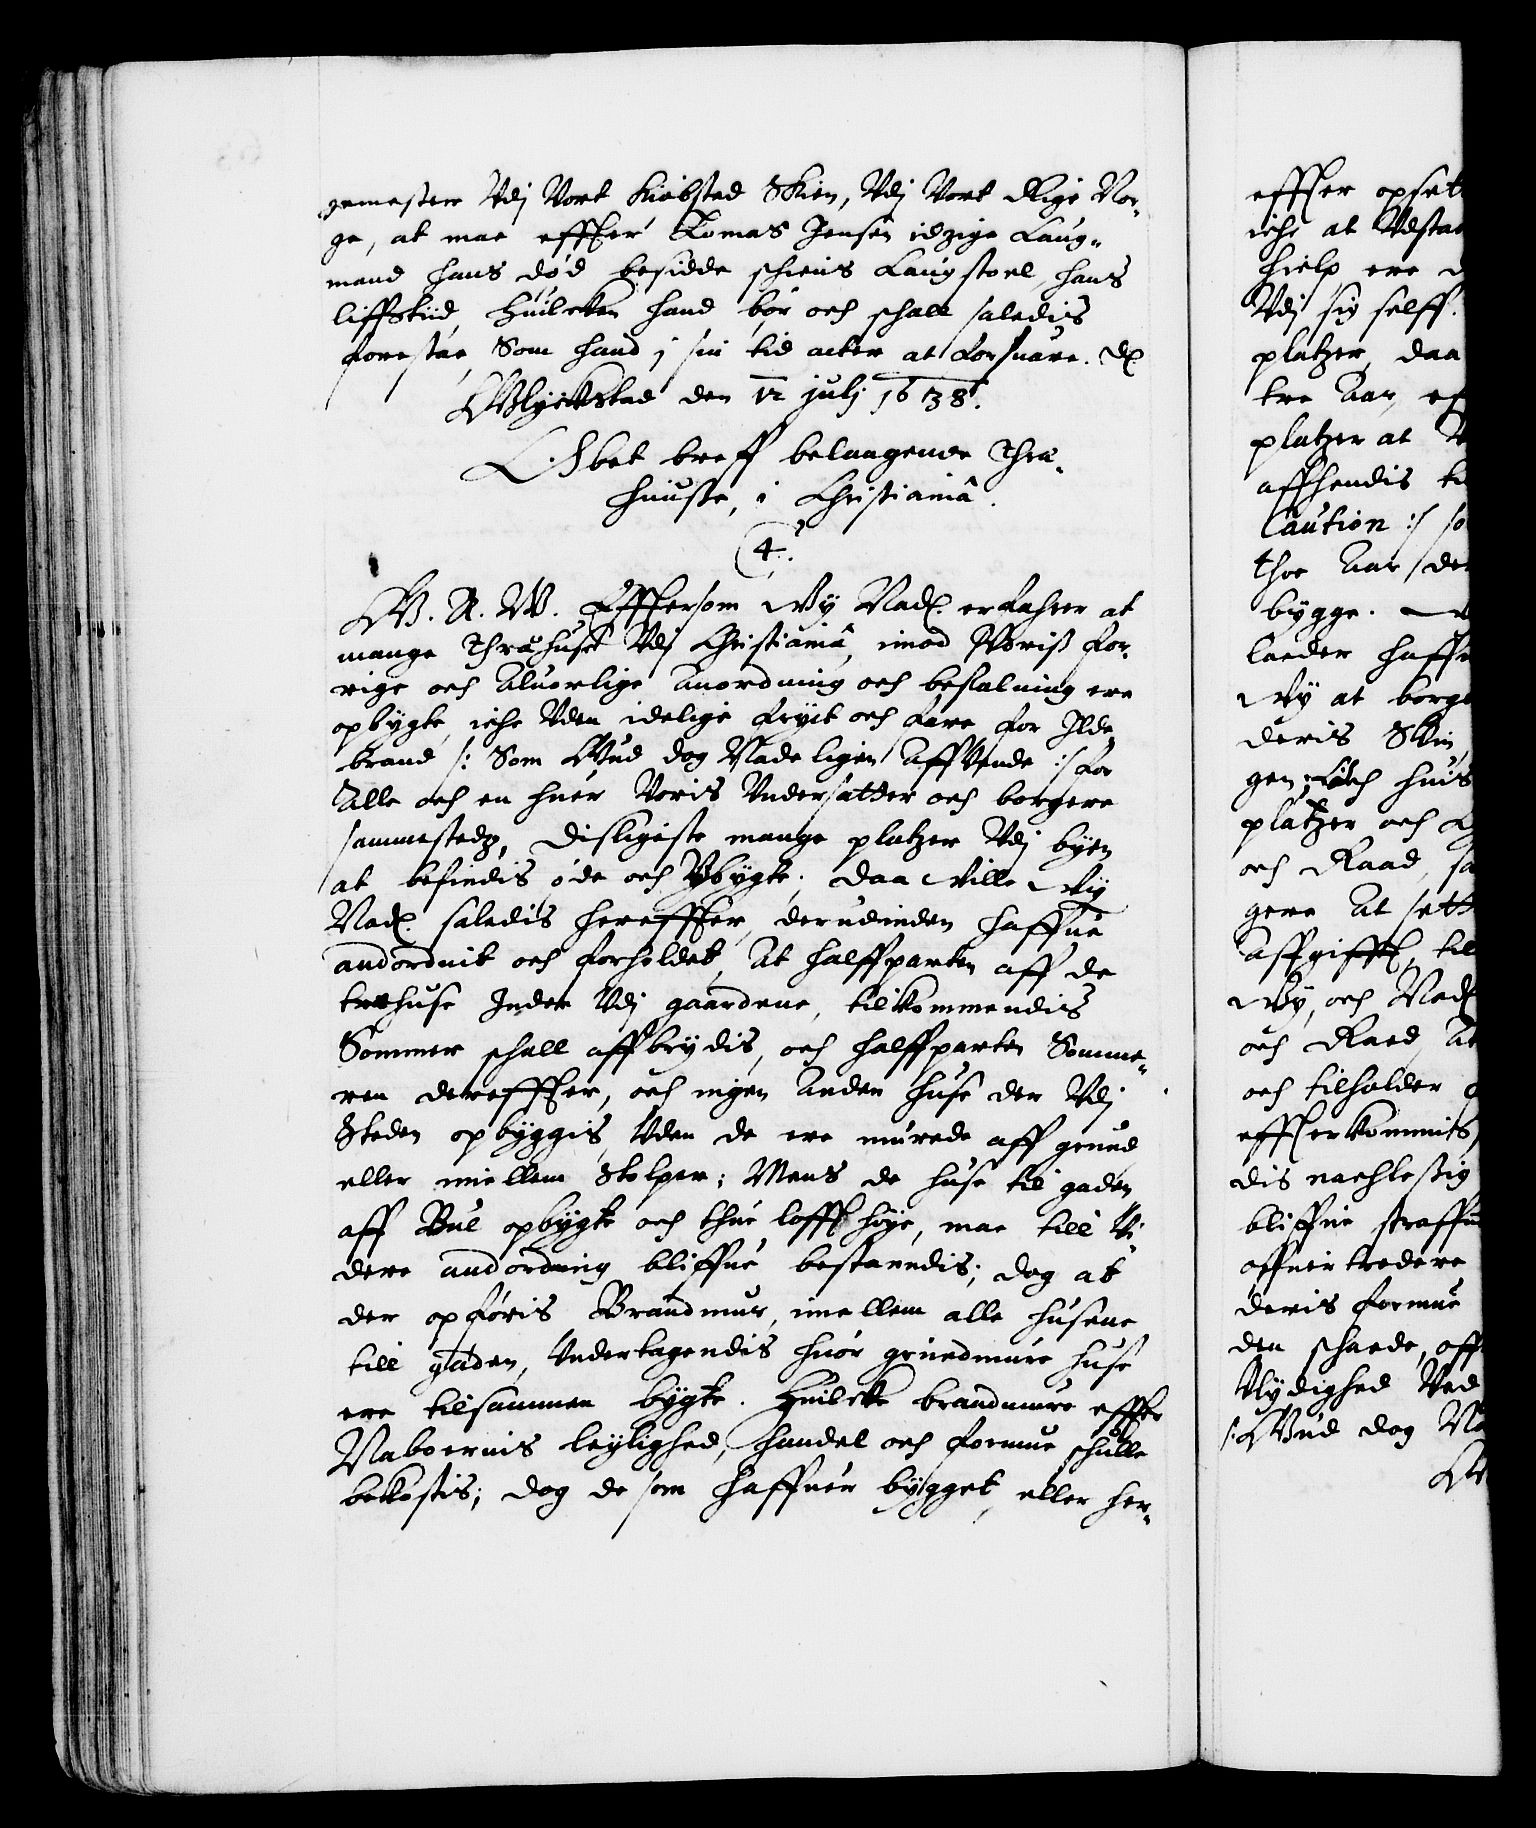 gemester Udj Vort kiøbsted Skien, Udj Vort Rige Nor-
ge, at maa effter Tomas Jensen idzige Laug-
mand hans død besidde schiens Laugstoel, hans
liffstiid, Huilcken hand bør och schall saledis
forestaa, Som hand j sin tid acter at forsuare. Dꝫ
Glyckstad den 12 julj 1638.
Obet breff belangende Thræ-
huuse, i Christianiâ.
4.
C. A. W. Efftersom Wy Nadꝫ. erfahrer at
mange Thræhuse Udj Christianiâ, imod Woriß for-
rige och Aluorlige Anordning och befalning ere
opbygte, iche Uden idelige fryct och fare for Ilde-
brand /: Som Gud dog Nadeligen Affvende :/ for
Alle och en huer Voris Undersatter och borgere
sammestedz, Disligiste mange platzer Udj byen
at befindis øde och Ubygte; daa Ville Wy
Nadꝫ. saledis hereffter, derudinden haffue
andordnit och forholdet, At halffparten aff de
træhuse Inden Udj gaardene, tilkommendis
Sommer schall affbrydis, och halffparten Somme-
ren dereffter, och ingen Anden huse der Udj
Steden opbyggis, Uden de ere murede aff grund
eller imellem Stolper; Mens de huse til gaden
aff Bul opbygte och thue lofft høye, maa till Vi-
dere andordning bliffue bestaendis; dog at
der opføris Brandmur, imellem alle husene
till gaden, Undertagendis huor grundmure huse
ere tilsammen bygte. Huilcke brandmure effter
Naboernis leylighed, handel och formue schulle
bekostis; dog de som haffuer bygget, eller her-
effter opsætt
iche at Udstaa
hielp ere
Udj sig selff.
platzer, daa
tre Aar, ef
platzer at
affhendis ti
Caution :/ so
thoe Aar de
bygge.
laeder haffu
Wy at borge
deris Skin
gen; och huis
platzer och
och Raad, sa
gere At sett
Affgifft, til
Wy, och Nadꝫ
och Raad, At
och tilholder
effterkommis,
dis nachlestig
bliffue straffu
offuertredere
deris formue
den schaede, off
Ulydighed Ved
/: Gud dog Na